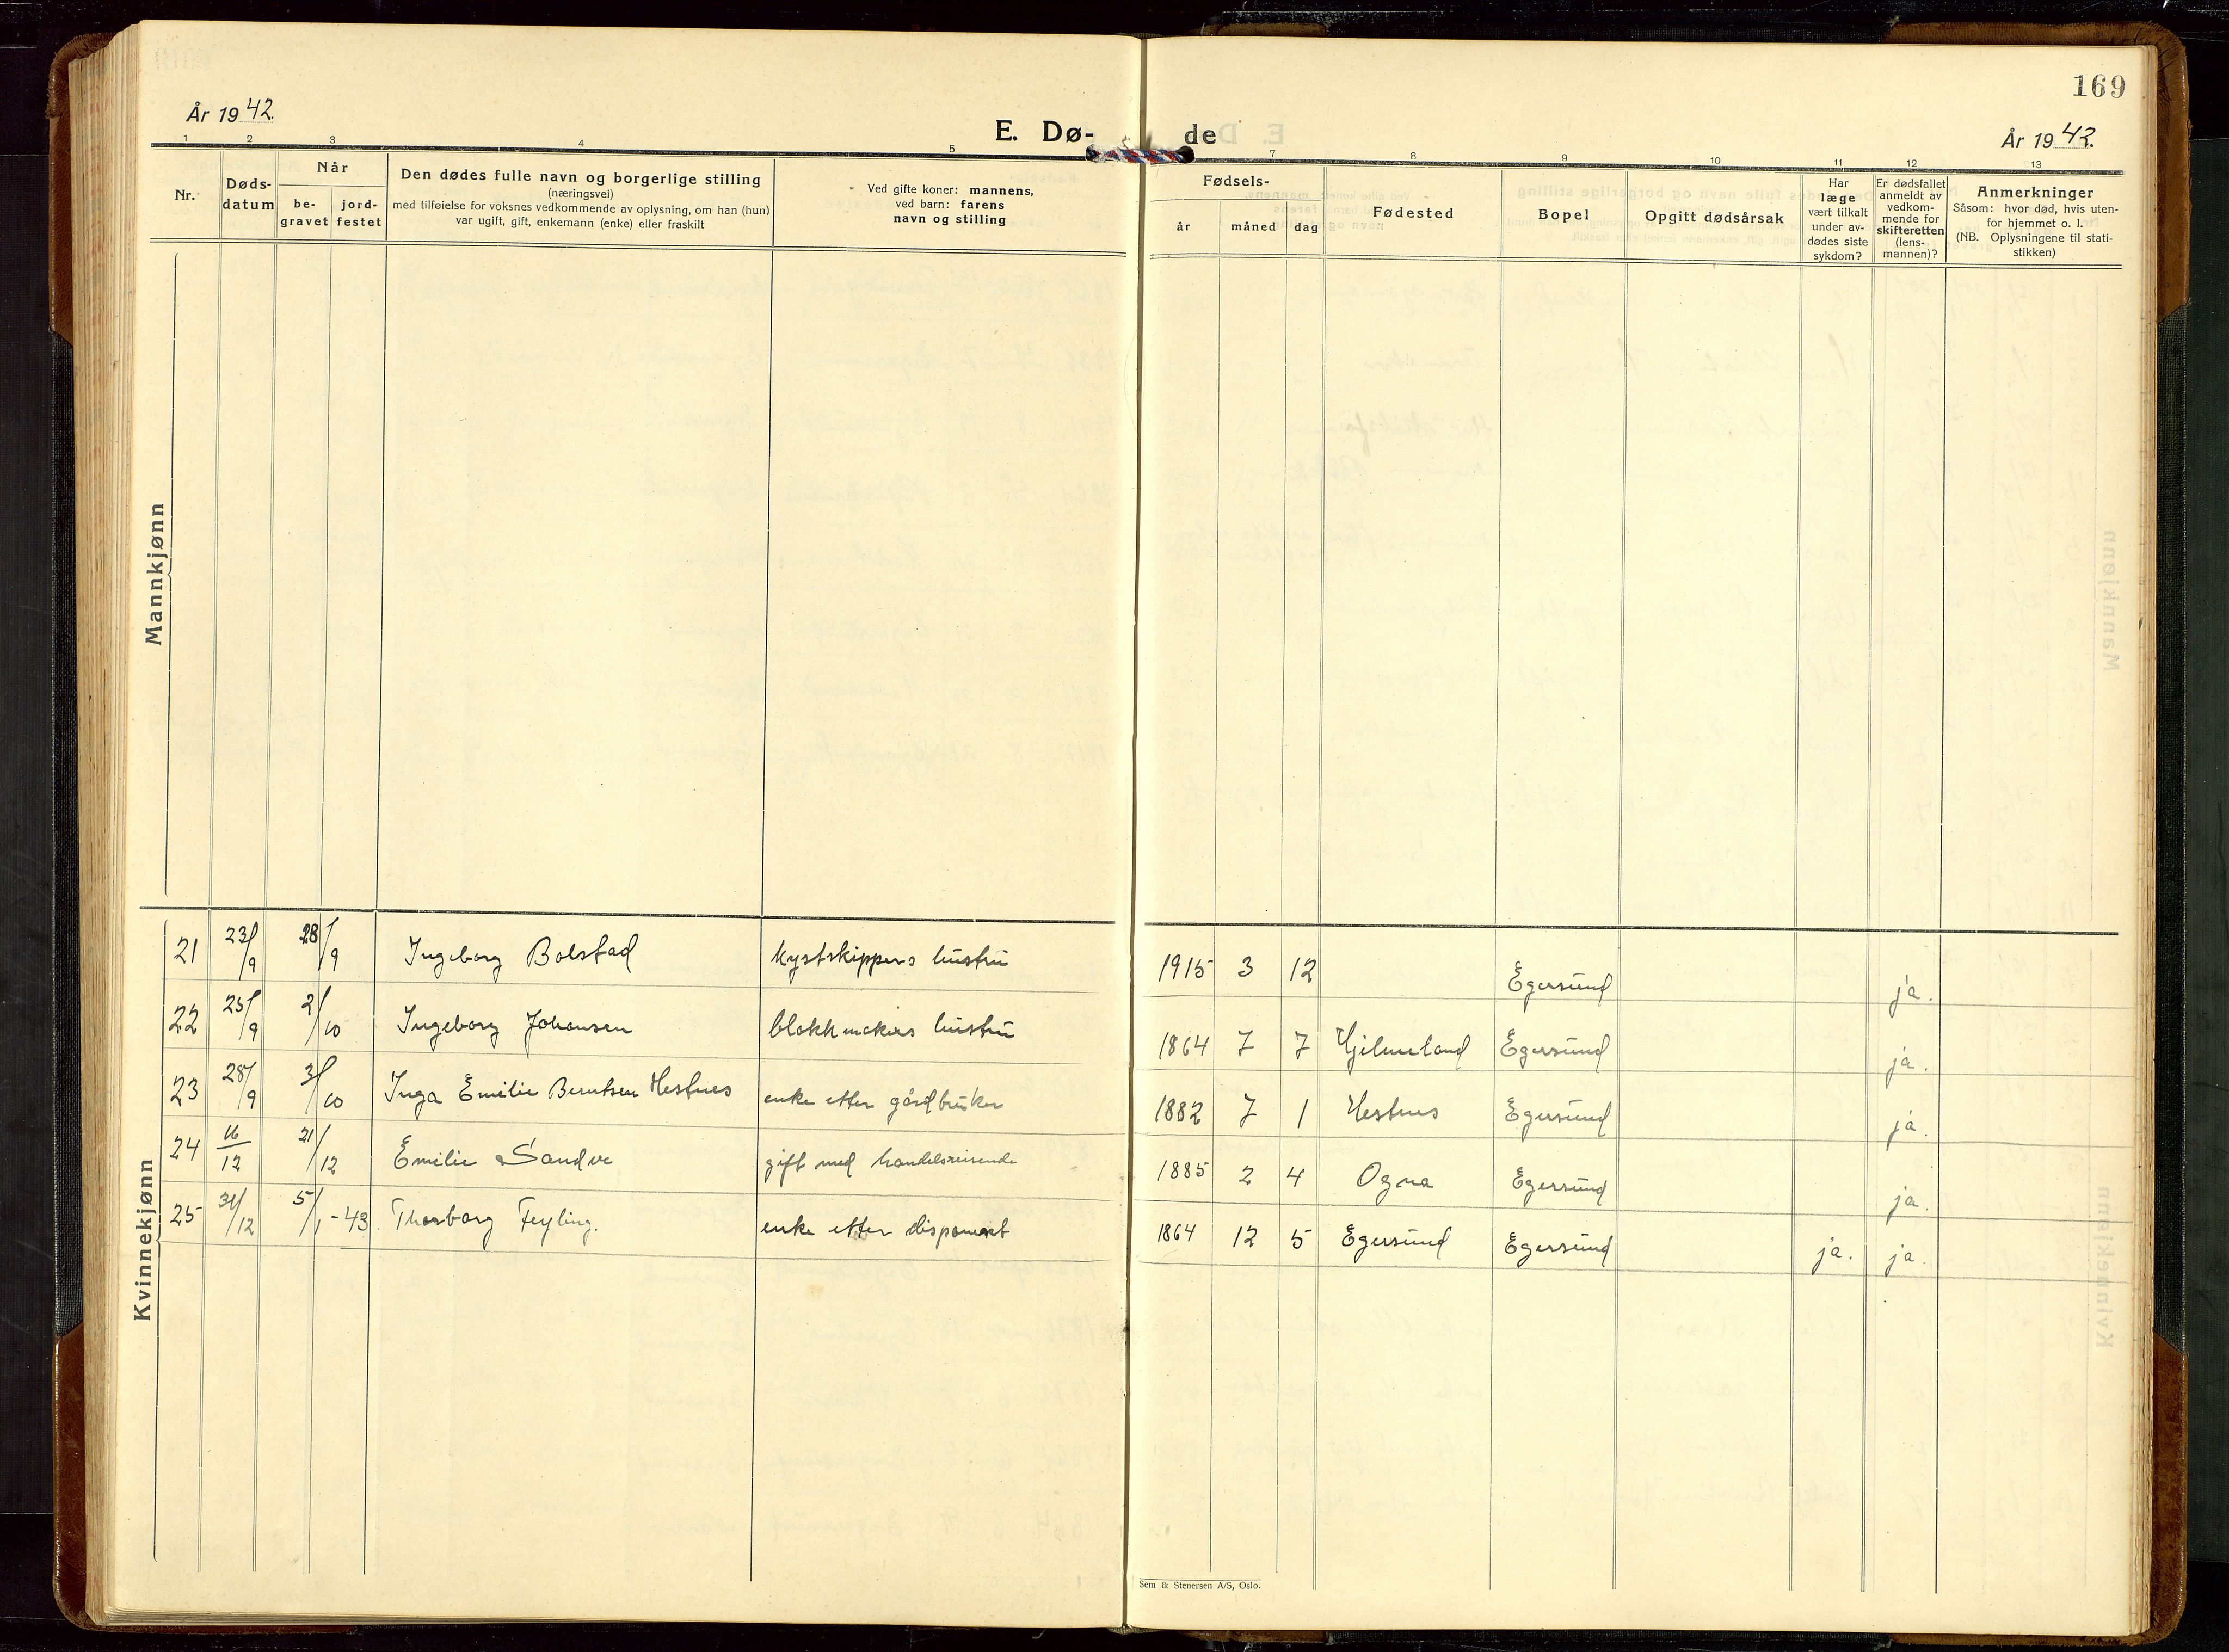 169
År 1942.
E. Dø-
de
År 1942.
1 2 3 4 5
7 8 9 10 11 12 13
Nr.
Døds-
datum
Når
be-
gravet
jord-
festet
Den dødes fulle navn og borgerlige stilling
(næringsvei)
med tilføielse for voksnes vedkommende av oplysning, om han (hun)
var ugift, gift, enkemann (enke) eller fraskilt
Ved gifte koner: mannens,
ved barn: farens
navn og stilling
Fødsels-
år måned dag
Fødested
Bopel
Opgitt dødsårsak
Har
læge
vært tilkalt
under av-
dødes siste
sykdom?
Er dødsfallet
anmeldt av
vedkom-
mende for
skifteretten
(lens-
mannen)?
Anmerkninger
Såsom: hvor død, hvis uten-
for hjemmet o. l.
(NB. Oplysningene til stati-
stikken)
Mannkjønn
Kvinnekjønn
21 23/9 28/9 Ingeborg Bolstad kystskippers hustru 1915 3 12 Egersund ja.
22 25/9 2/10 Ingeborg Johansen blokkmakers hustru 1864 7 7 Hjelmeland Egersund ja.
23 28/9 3/10 Inga Emilie Berntsen Hestnes enke etter gårdbruker 1882 7 1 Hestnes Egersund ja.
24 16/12 21/12 Emilie Sandve gift med handelsreisende 1885 2 4 Ogna Egersund ja.
25 31/12 5/1-43 Thorborg Feyling. enke etter disponent 1864 12 5 Egersund Egersund ja. ja.
Sem & Stenersen A/S, Oslo.